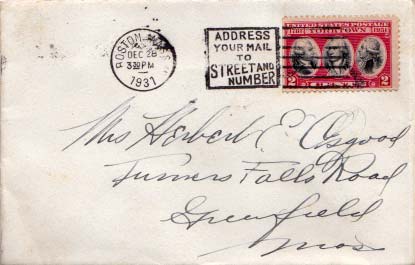 BOSTON, MASS.
DEC 28
3 30 PM
1931
ADDRESS
YOUR MAIL
TO
STREET AND
NUMBER
UNITED STATES POSTAGE
1781 YORKTOWN 1931
2 CENTS 2
Mrs Herbert E Osgood
Turners Falls Road
Greenfield
Mass